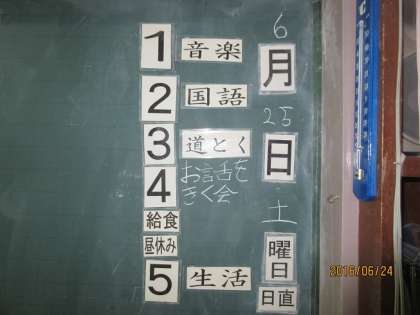 6
月
25
日
土
曜
日
日直
1 音楽
2 国語
3 道とく
4 お話を
きく会
給食
昼休み
5 生活
2016/06/24